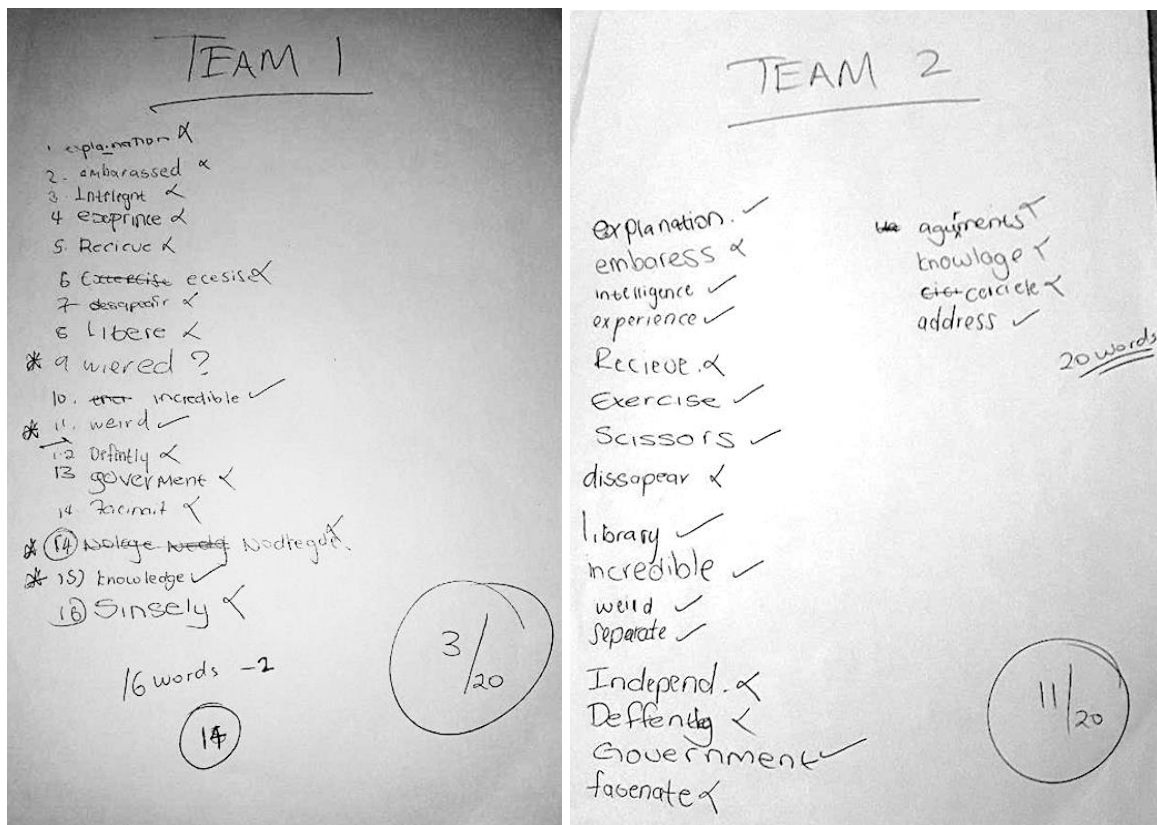 TEAM 1
1. explaination
2. embarassed
3. Intelegnt
4 exeprince
5. Recieve
6 ecesise
7 desapeair
8 Libere
* 9 wiered ?
10. incredible
* 11. weird
12 Defintly
13 goverment
14 facinait
* 14)
* 15) knowledge
16) Sinsely
16 words -2
14
3/20
TEAM 2
explanation.
embaress
intelligence
experience
Recieve.
Exercise
Scissors
dissapear
library
incredible
weird
separate
Independ.
Government
fasenate
knowlage
address
20 words
11/20